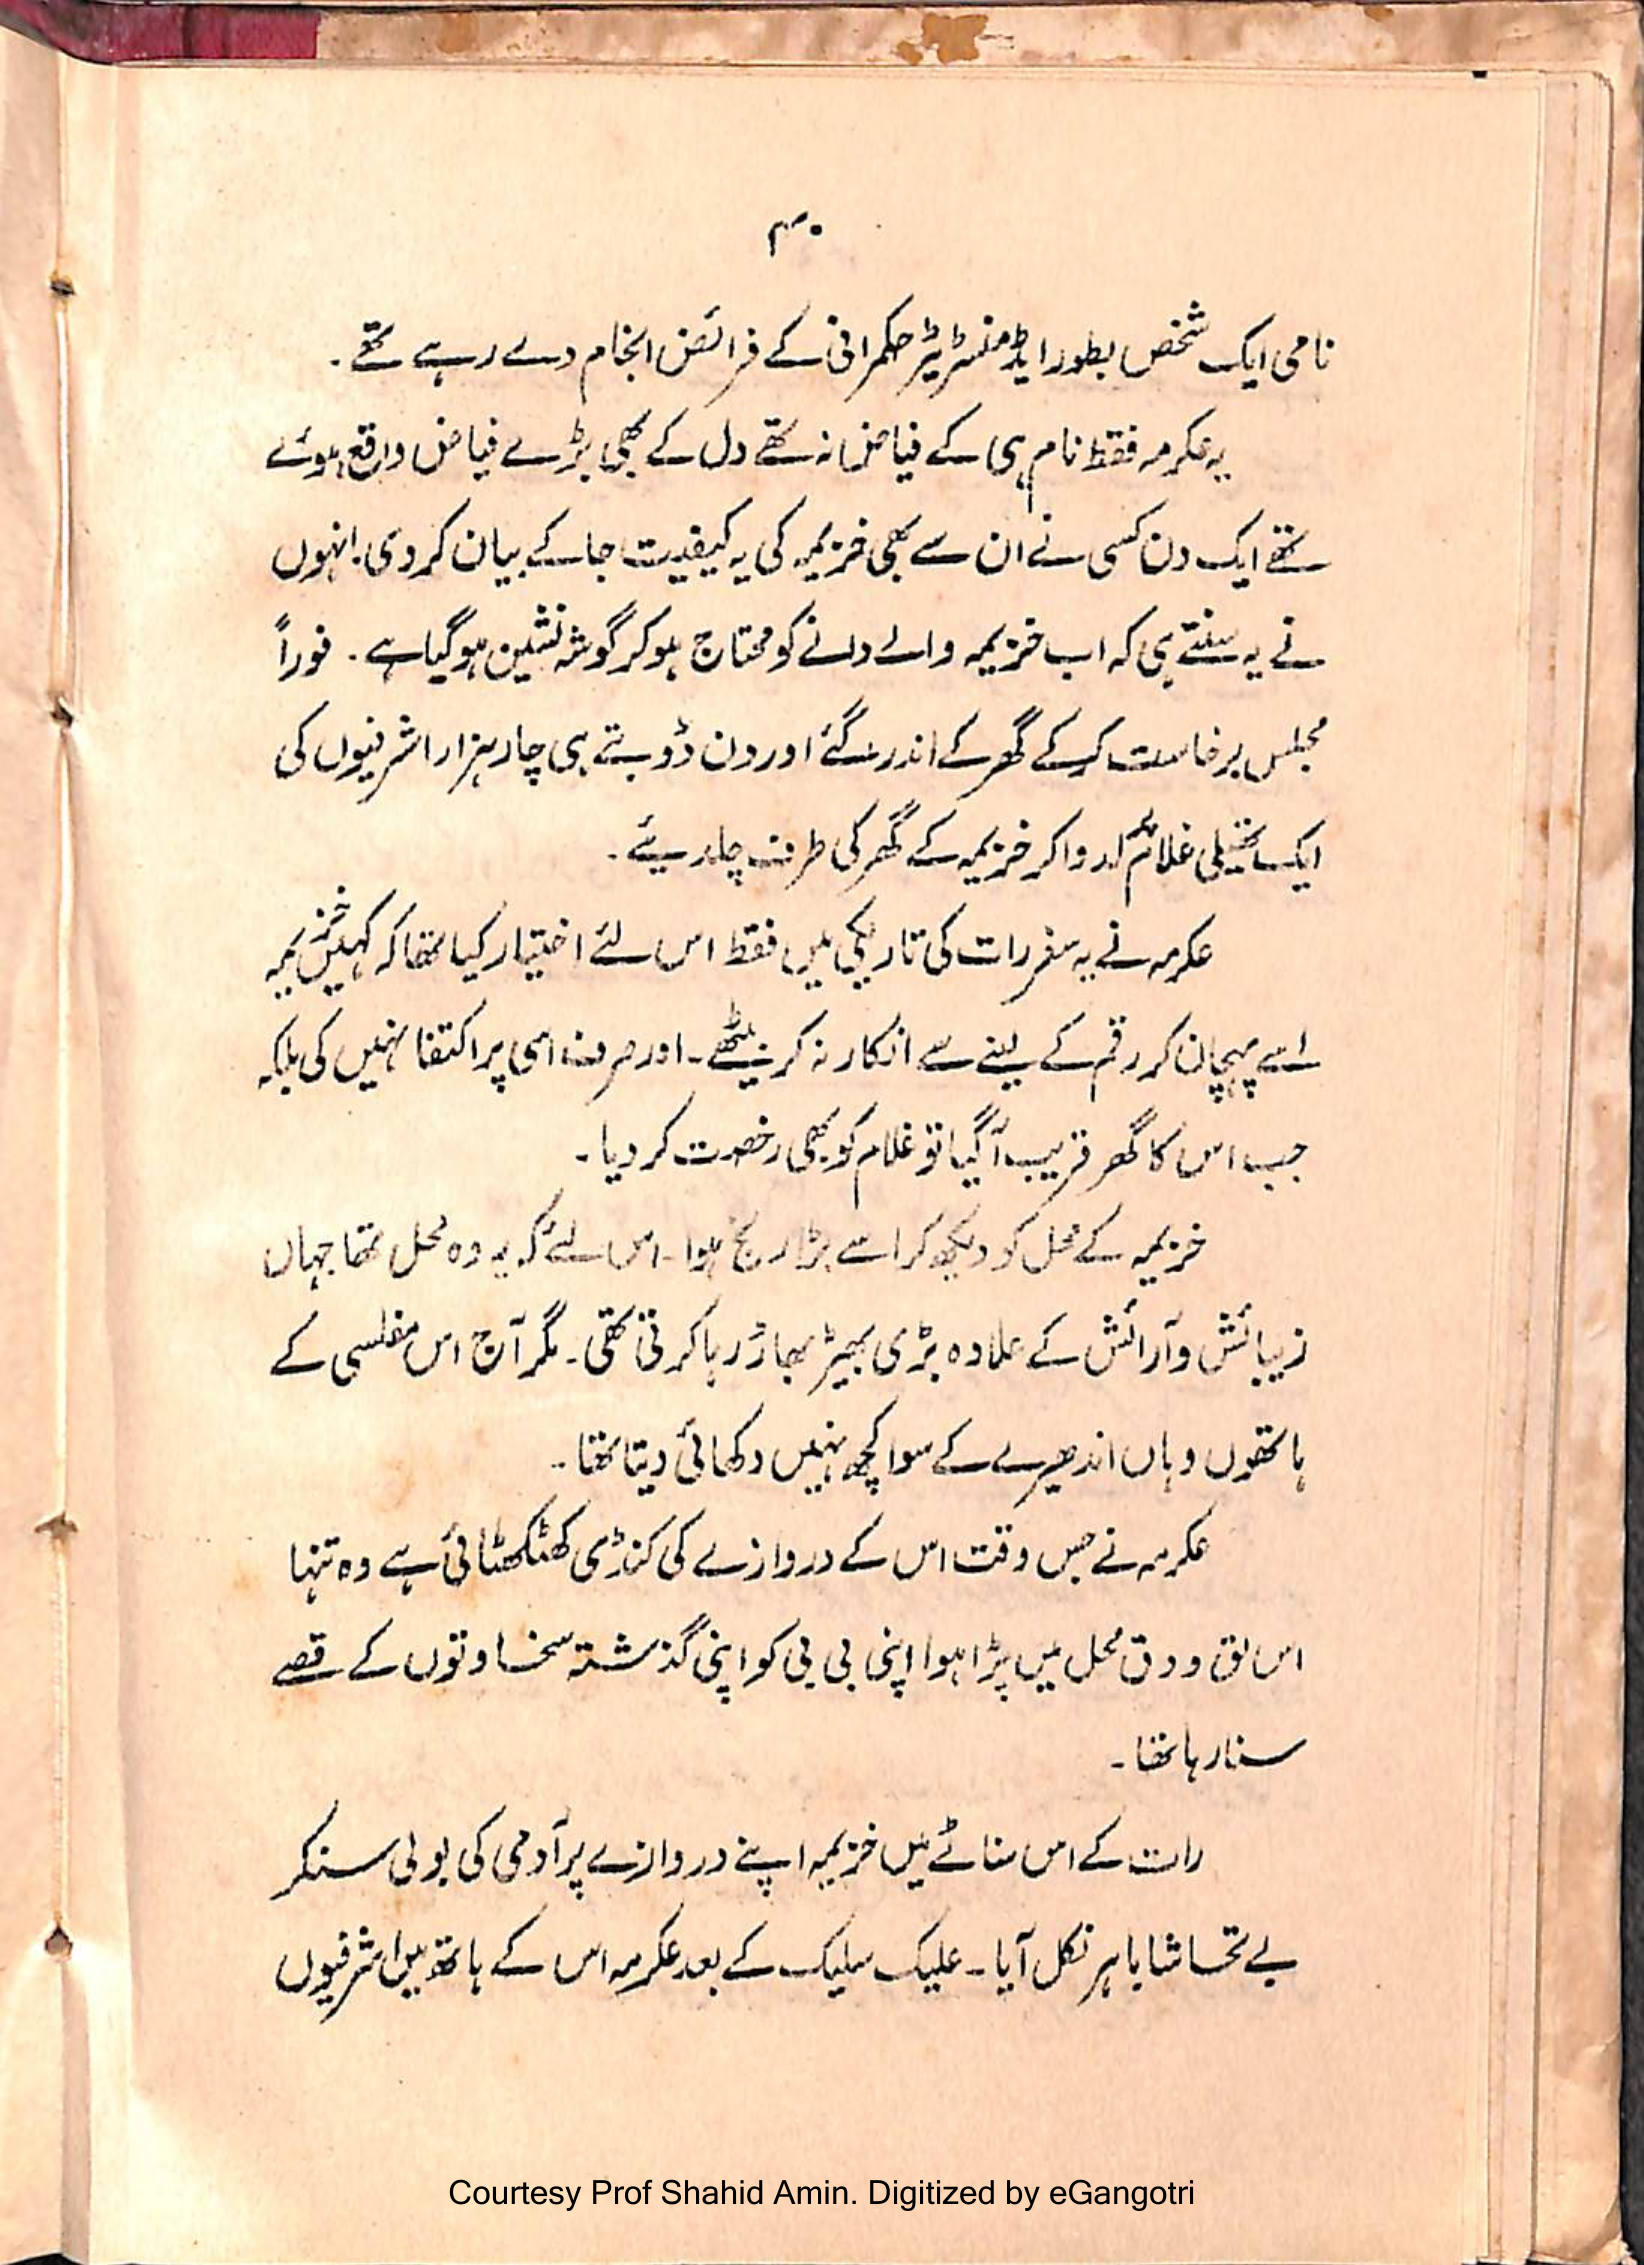 ۴۰
نامی ایک شخص بطور ایڈمنسٹریٹر حکمرانی کے فرائض انجام دے رہے تھے۔
یہ عکرمہ فقط نام ہی کے فیاض نہ تھے دل کے بھی بڑے فیاض واقع ہوئے
تھے ایک دن کسی نے ان سے بھی خزیمہ کی یہ کیفیت جا کے بیان کر دی۔ انہوں
نے یہ سنتے ہی کہ اب خزیمہ والے دانے کو محتاج ہو کر گوشہ نشین ہو گیا ہے۔ فوراً
مجلس برخاست کر کے گھر کے اندر گئے اور دن ڈوبتے ہی چار ہزار اشرفیوں کی
ایک تھیلی غلام پر لدوا کر خزیمہ کے گھر کی طرف چل دیئے۔
عکرمہ نے یہ سفر رات کی تاریکی میں فقط اس لئے اختیار کیا تھا کہ کہیں خزیمہ
اسے پہچان کر رقم کے لینے سے انکار نہ کر بیٹھے۔ اور صرف اسی پر اکتفا نہیں کی بلکہ
جب اس کا گھر قریب آ گیا تو غلام کو بھی رخصت کر دیا۔
خزیمہ کے محل کو دیکھ کر اسے بڑا رنج ہوا۔ اس لئے کہ یہ وہ محل تھا جہاں
زیبائش و آرائش کے علاوہ بڑی بھیڑ بھاڑ رہا کرتی تھی۔ مگر آج اس مفلسی کے
ہاتھوں وہاں اندھیرے کے سوا کچھ نہیں دکھائی دیتا تھا۔
عکرمہ نے جس وقت اس کے دروازے کی کنڈی کھٹکھٹائی ہے وہ تنہا
اس لق و دق محل میں پڑا ہوا اپنی بی بی کو اپنی گذشتہ سخاوتوں کے قصے
سنا رہا تھا۔
رات کے اس سناٹے میں خزیمہ اپنے دروازے پر آدمی کی بولی سنکر
بے تحاشا باہر نکل آیا۔ علیک سلیک کے بعد عکرمہ اس کے ہاتھ میں اشرفیوں
Courtesy Prof Shahid Amin. Digitized by eGangotri